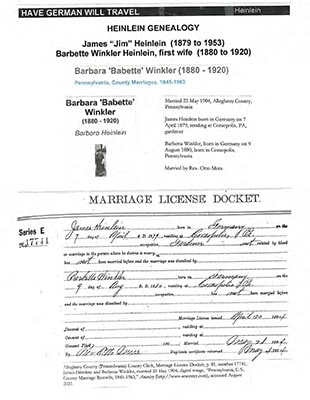 HAVE GERMAN WILL TRAVEL
Heinlein
HEINLEIN GENEALOGY
James "Jim" Heinlein (1879 to 1953)
Barbette Winkler Heinlein, first wife (1880 to 1920)
Barbara 'Babette' Winkler (1880 - 1920)
Pennsylvania, County Marriages, 1845-1963
Barbara 'Babette'
Winkler
(1880 - 1920)
Barbara Heinlein
Married 21 May 1904, Allegheny County,
Pennsylvania
James Heinlein born in Germany on 7
April 1879, residing at Coraopolis, PA,
gardener
Barbetta Winkler, born in Germany on 9
August 1880, born in Coraopolis,
Pennsylvania
Married by Rev. Otto Mees
MARRIAGE LICENSE DOCKET.
Series E
17741
James Heinlein born in Germany on the
7 day of April A. D. 1879, residing at Coraopolis, Pa.
occupation Gardener not related by blood
or marriage to the person whom he desires to marry.
has not been married before and the marriage was dissolved by
Barbette Winkler born in Germany on the
9 day of Aug A. D. 1880, residing at Coraopolis Pa.
occupation not been married before
and the marriage was dissolved by
Marriage License issued April 190 4
Consent of residing at
Consent of residing at
Consent Filed 190 Married May 21 1904
By Rev Otto Mees Duplicate certificate returned May 1904
Allegheny County (Pennsylvania) County Clerk, Marriage License Docket, p. 81, number 17741,
James Heinlein and Barbetta Winkler, married 21 May 1904, digital image, "Pennsylvania, U.S.,
County Marriage Records, 1845-1963," Ancestry (http://www.ancestry.com), accessed August
2021.